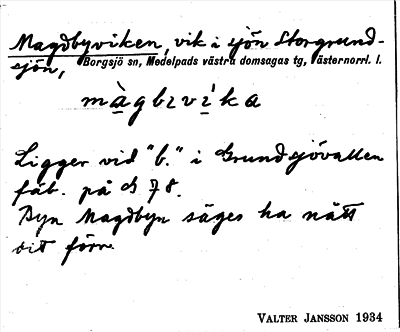 Magdbyviken, vik i sjön Storgrund-
sjön, Borgsjö sn, Medelpads västra domsagas tg, Västernorrl. l.
màgbɪvì'ka
Ligger vid "b." i Grundsjövallen
fäb. på G 78.
Byn Magdbyn säges ha nått
dit förr.
VALTER JANSSON 1934